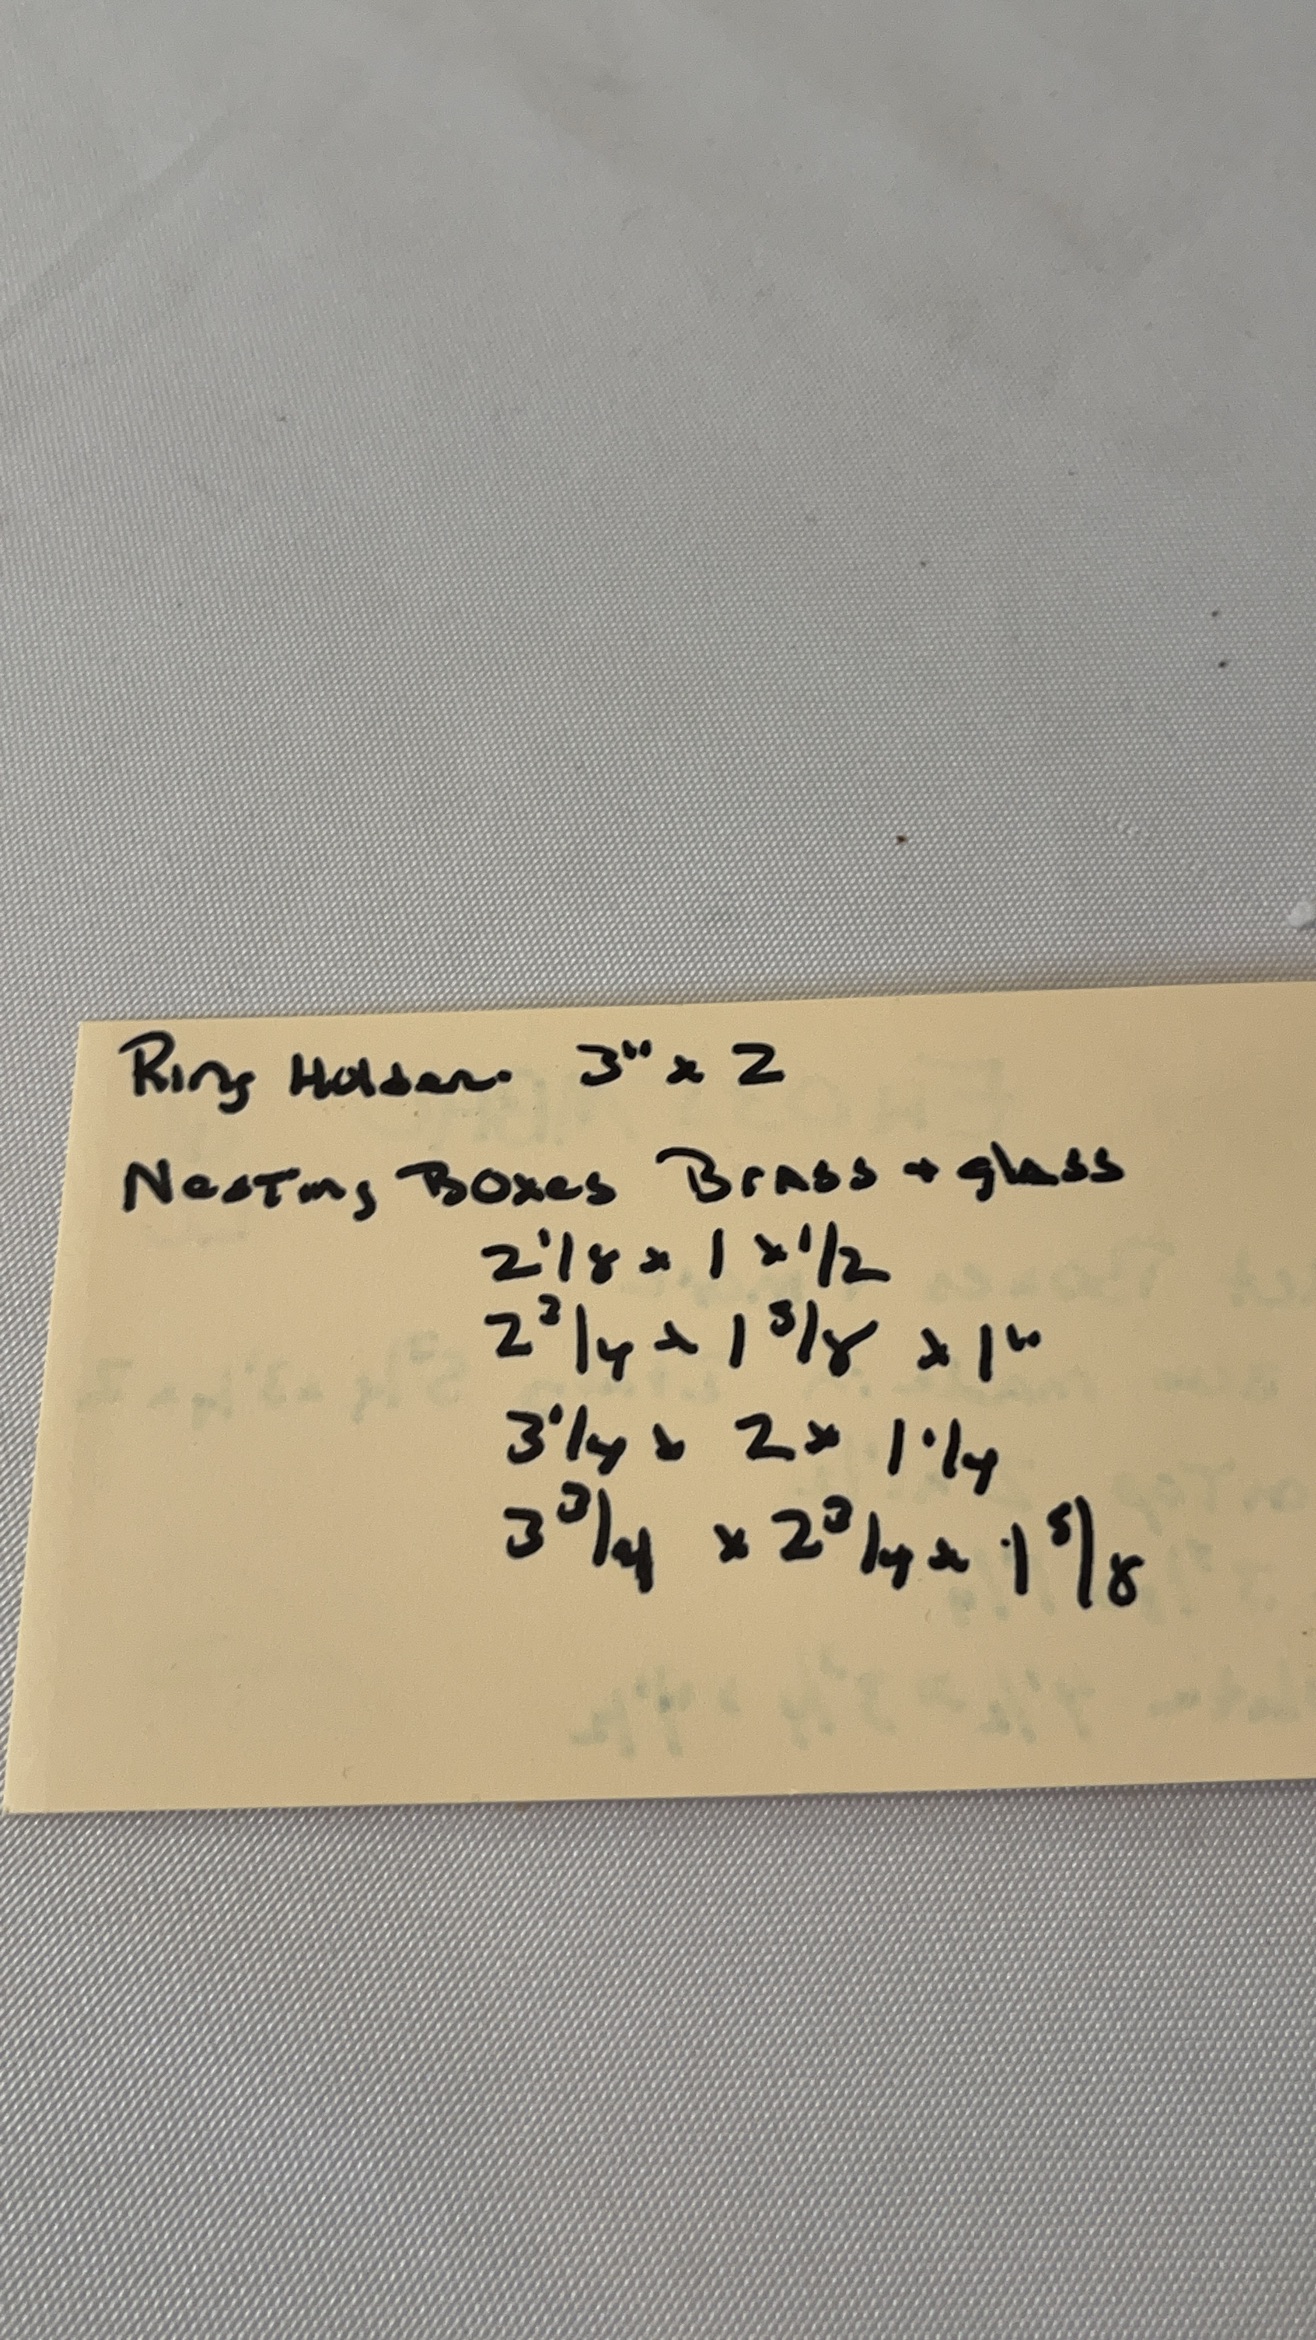 Ring Holder. 3" x 2
Nesting Boxes Brass + glass
2 1/8 x 1 x 1/2
2 3/4 x 1 5/8 x 1"
3 1/4 x 2 x 1 1/4
3 3/4 x 2 3/4 x 1 5/8